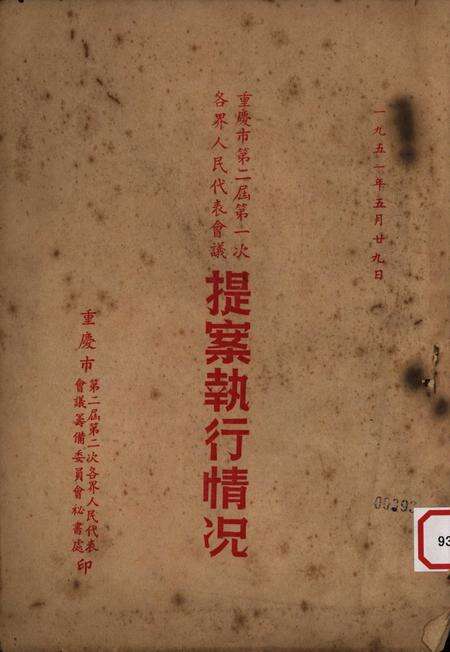 一九五一年五月廿九日
重慶市第二屆第一次
各界人民代表會議
提案執行情况
重慶市
第二屆第二次各界人民代表
會議籌備委員會祕書處
印
00393
93